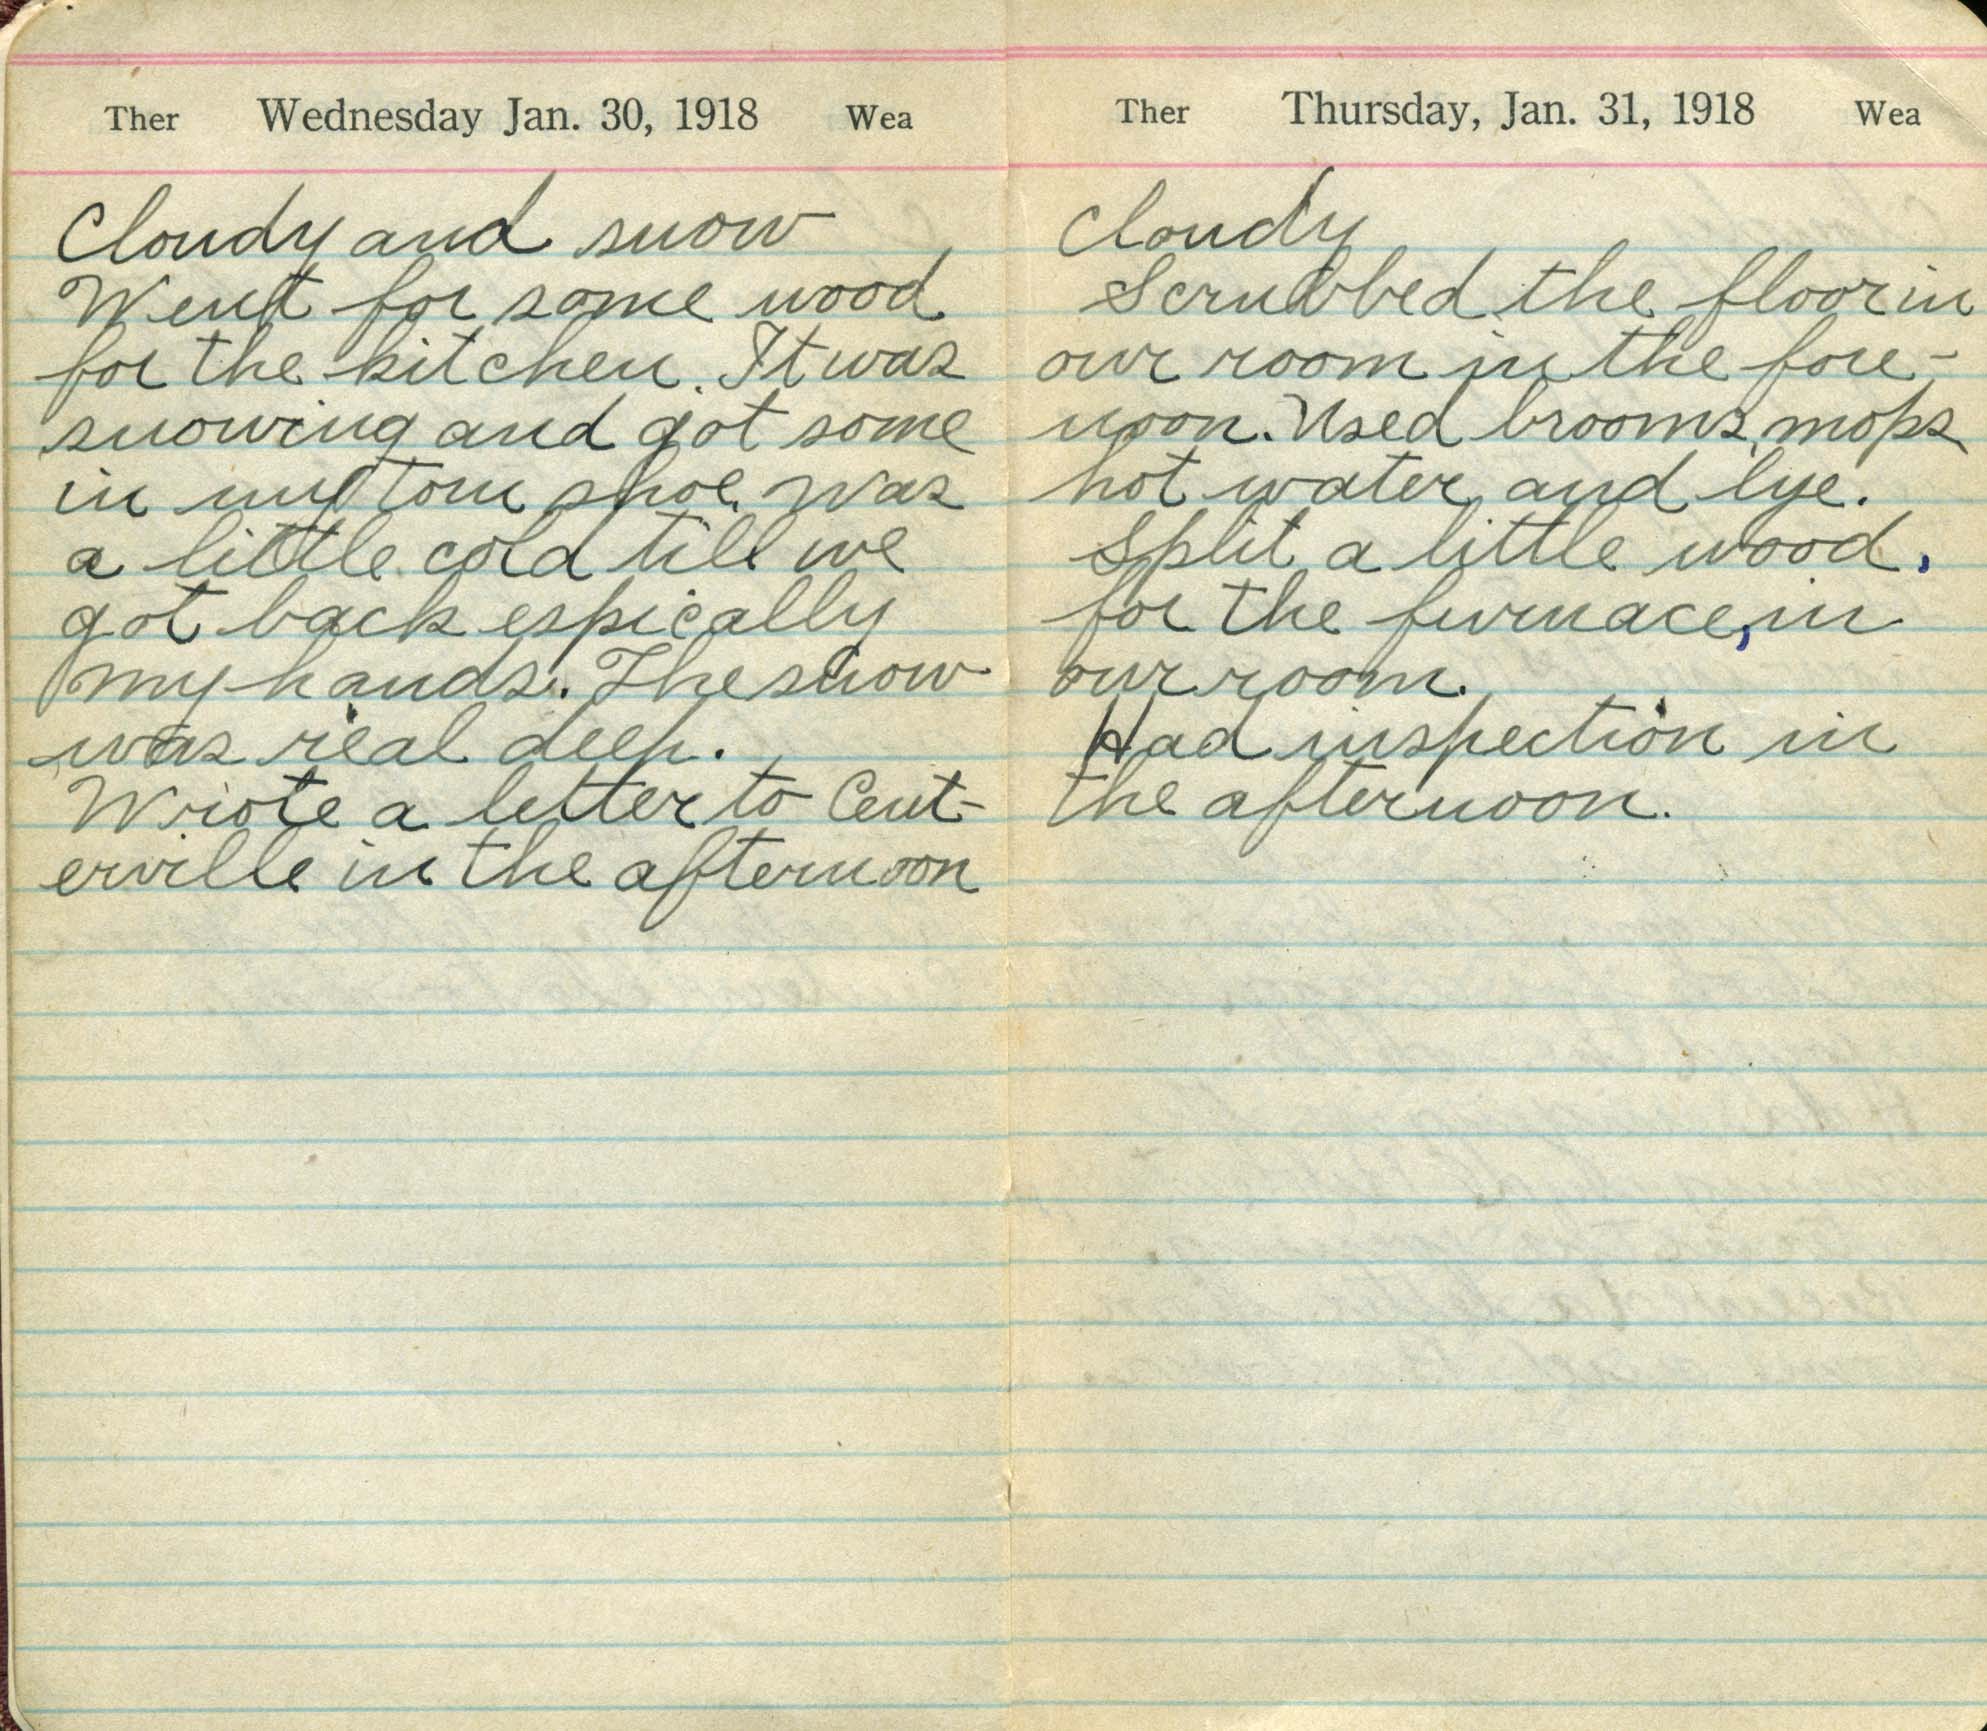 Ther Wednesday Jan. 30, 1918 Wea
Cloudy and snow
Went for some wood
for the kitchen. It was
snowing and got some
in my torn shoe. Was
a little cold till we
got back espically
my hands. The snow
was real deep.
Wrote a letter to Cent-
erville in the afternoon
Ther Thursday, Jan. 31, 1918 Wea
Cloudy
Scrubbed the floor in
our room in the fore-
noon. Used brooms, mops
hot water and lye.
Split a little wood,
for the furnace, in
our room.
Had inspection in
the afternoon.